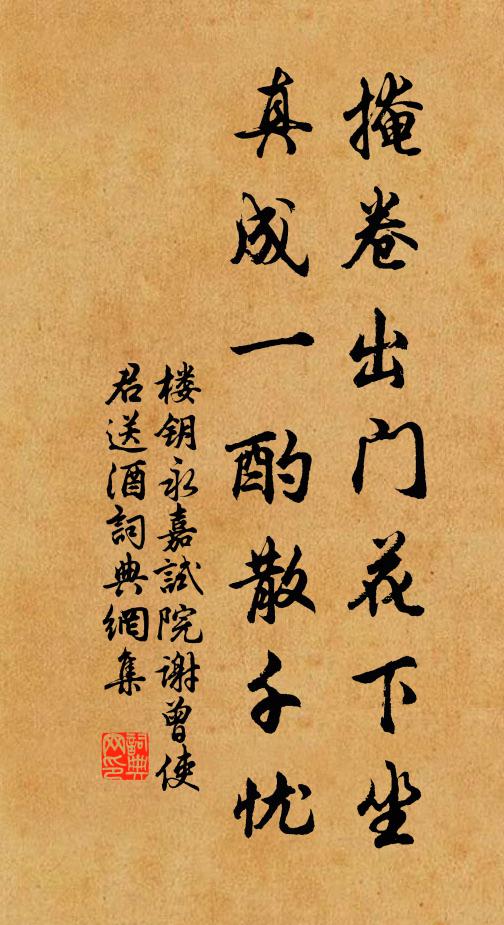 掩卷出门花下坐
真成一酌散千忧
楼钥永嘉試院谢曾使
君送酒詞典網集
詞典
网印